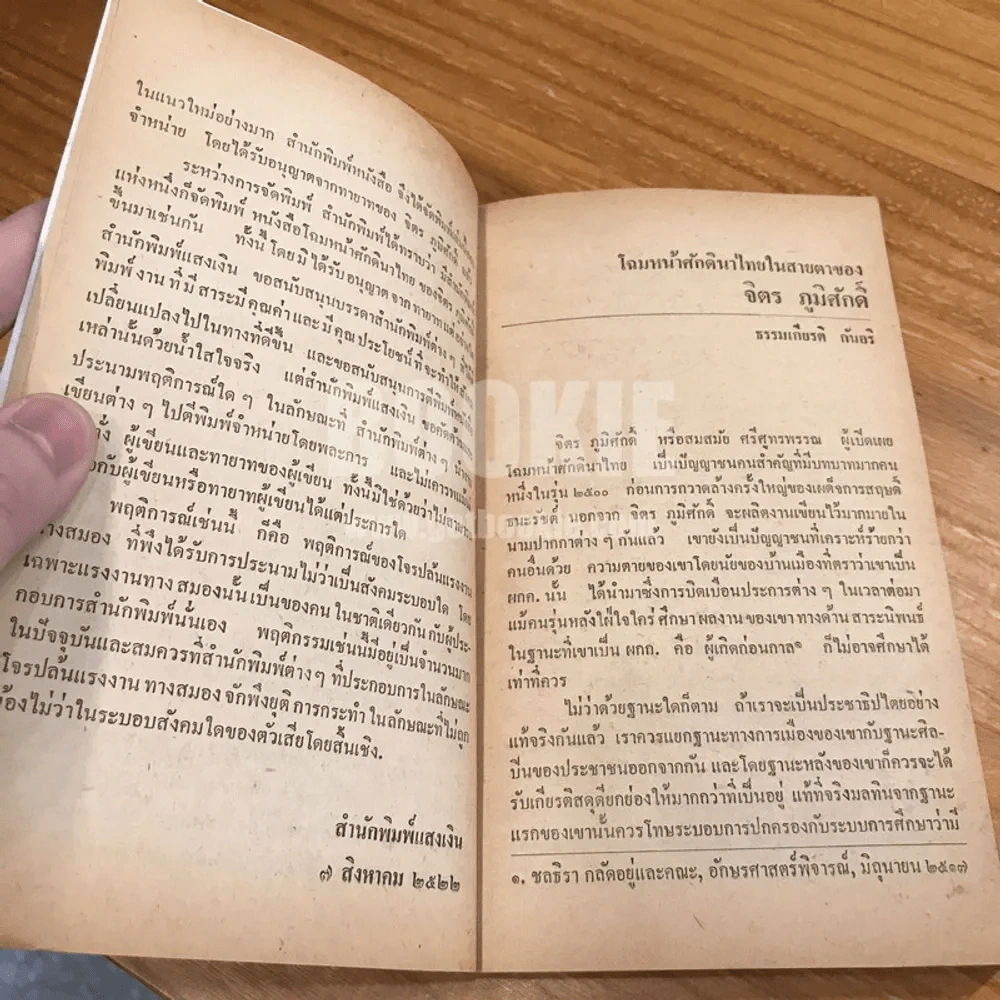 ในแนวใหม่อย่างมาก สำนักพิมพ์หนังสือ จึงได้จัดพิมพ์
จำหน่าย โดยได้รับอนุญาตจากทายาทของ จิตร ภูมิศักดิ์
ระหว่างการจัดพิมพ์ สำนักพิมพ์ได้ทราบว่า
แห่งหนึ่งก็จัดพิมพ์ หนังสือโฉมหน้าศักดินาไทย ของจิตร ภูมิศักดิ์
ขึ้นมาเช่นกัน ทั้งนี้ โดยมิได้รับ อนุญาต จาก ทายาท
สำนักพิมพ์แสงเงิน ขอสนับสนุนบรรดาสำนักพิมพ์ต่าง ๆ
พิมพ์ งาน ที่ มี สาระ มี คุณค่า และ มี คุณ ประโยชน์ ที่ จะทำให้
เปลี่ยนแปลงไปในทางที่ดีขึ้น และขอสนับสนุนการตีพิมพ์
เหล่านั้นด้วยน้ำใสใจจริง แต่สำนักพิมพ์แสงเงิน ขอคัดค้าน
ประนามพฤติการณ์ใด ๆ ในลักษณะที่ สำนักพิมพ์ต่าง ๆ
เขียนต่าง ๆ ไปตีพิมพ์จำหน่ายโดยพละการ และไม่เคารพ
ผู้เขียนและทายาทของผู้เขียน ทั้งนี้มิใช่ด้วยว่าไม่สามารถ
กับผู้เขียนหรือทายาทผู้เขียนได้แต่ประการใด
พฤติการณ์เช่นนี้ ก็คือ พฤติการณ์ของโจรปล้นแรงงาน
ทางสมอง ที่พึงได้รับการประนามไม่ว่าเป็นสังคมระบอบใด โดย
เฉพาะแรงงานทาง สมองนั้น เป็นของคน ในชาติเดียวกัน กับผู้ประ-
กอบการสำนักพิมพ์นั่นเอง พฤติกรรมเช่นนี้มีอยู่เป็นจำนวนมาก
ในปัจจุบันและสมควรที่สำนักพิมพ์ต่างๆ ที่ประกอบการในลักษณะ
โจรปล้นแรงงาน ทางสมอง จักพึงยุติ การกระทำ ในลักษณะที่ไม่ถูก
ต้องไม่ว่าในระบอบสังคมใดของตัวเสียโดยสิ้นเชิง.
สำนักพิมพ์แสงเงิน
๗ สิงหาคม ๒๕๒๒
โฉมหน้าศักดินาไทยในสายตาของ
จิตร ภูมิศักดิ์
ธรรมเกียรติ กันอริ
จิตร ภูมิศักดิ์ หรือสมสมัย ศรีศูทรพรรณ ผู้เปิดเผย
โฉมหน้าศักดินาไทย เป็นปัญญาชนคนสำคัญที่มีบทบาทมากคน
หนึ่งในรุ่น ๒๕๐๐ ก่อนการกวาดล้างครั้งใหญ่ของเผด็จการสฤษดิ์
ธนะรัชต์ นอกจาก จิตร ภูมิศักดิ์ จะผลิตงานเขียนไว้มากมายใน
นามปากกาต่าง ๆ กันแล้ว เขายังเป็นปัญญาชนที่เคราะห์ร้ายกว่า
คนอื่นด้วย ความตายของเขาโดยนัยของบ้านเมืองที่ตราว่าเขาเป็น
ผกค. นั้น ได้นำมาซึ่งการบิดเบือนประการต่าง ๆ ในเวลาต่อมา
แม้คนรุ่นหลังใฝ่ใจใคร่ ศึกษา ผลงาน ของเขา ทางด้าน สาระนิพนธ์
ในฐานะที่เขาเป็น ผกก. คือ ผู้เกิดก่อนกาล๑ ก็ไม่อาจศึกษาได้
เท่าที่ควร
ไม่ว่าด้วยฐานะใดก็ตาม ถ้าเราจะเป็นประชาธิปไตยอย่าง
แท้จริงกันแล้ว เราควรแยกฐานะทางการเมืองของเขากับฐานะศิล-
ปินของประชาชนออกจากกัน และโดยฐานะหลังของเขาก็ควรจะได้
รับเกียรติสดุดียกย่องให้มากกว่าที่เป็นอยู่ แท้ที่จริงมลทินจากฐานะ
แรกของเขานั้นควรโทษระบอบการปกครองกับระบบการศึกษาว่ามี
๑. ชลธิรา กลัดอยู่และคณะ, อักษรศาสตร์พิจารณ์, มิถุนายน ๒๕๑๗